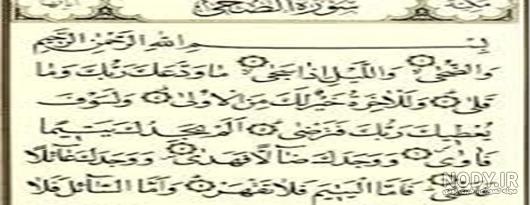 سورة الضحى
بسم الله الرحمن الرحيم
والضحى والليل اذا سجى ما ودعك ربك وما
قلى وللاخرة خير لك من الاولى ولسوف
يعطيك ربك فترضى الم يجدك يتيما
فاوى ووجدك ضالا فهدى ووجدك عائلا
فاغنى فاما اليتيم فلا تقهر واما السائل فلا
NODY.IR